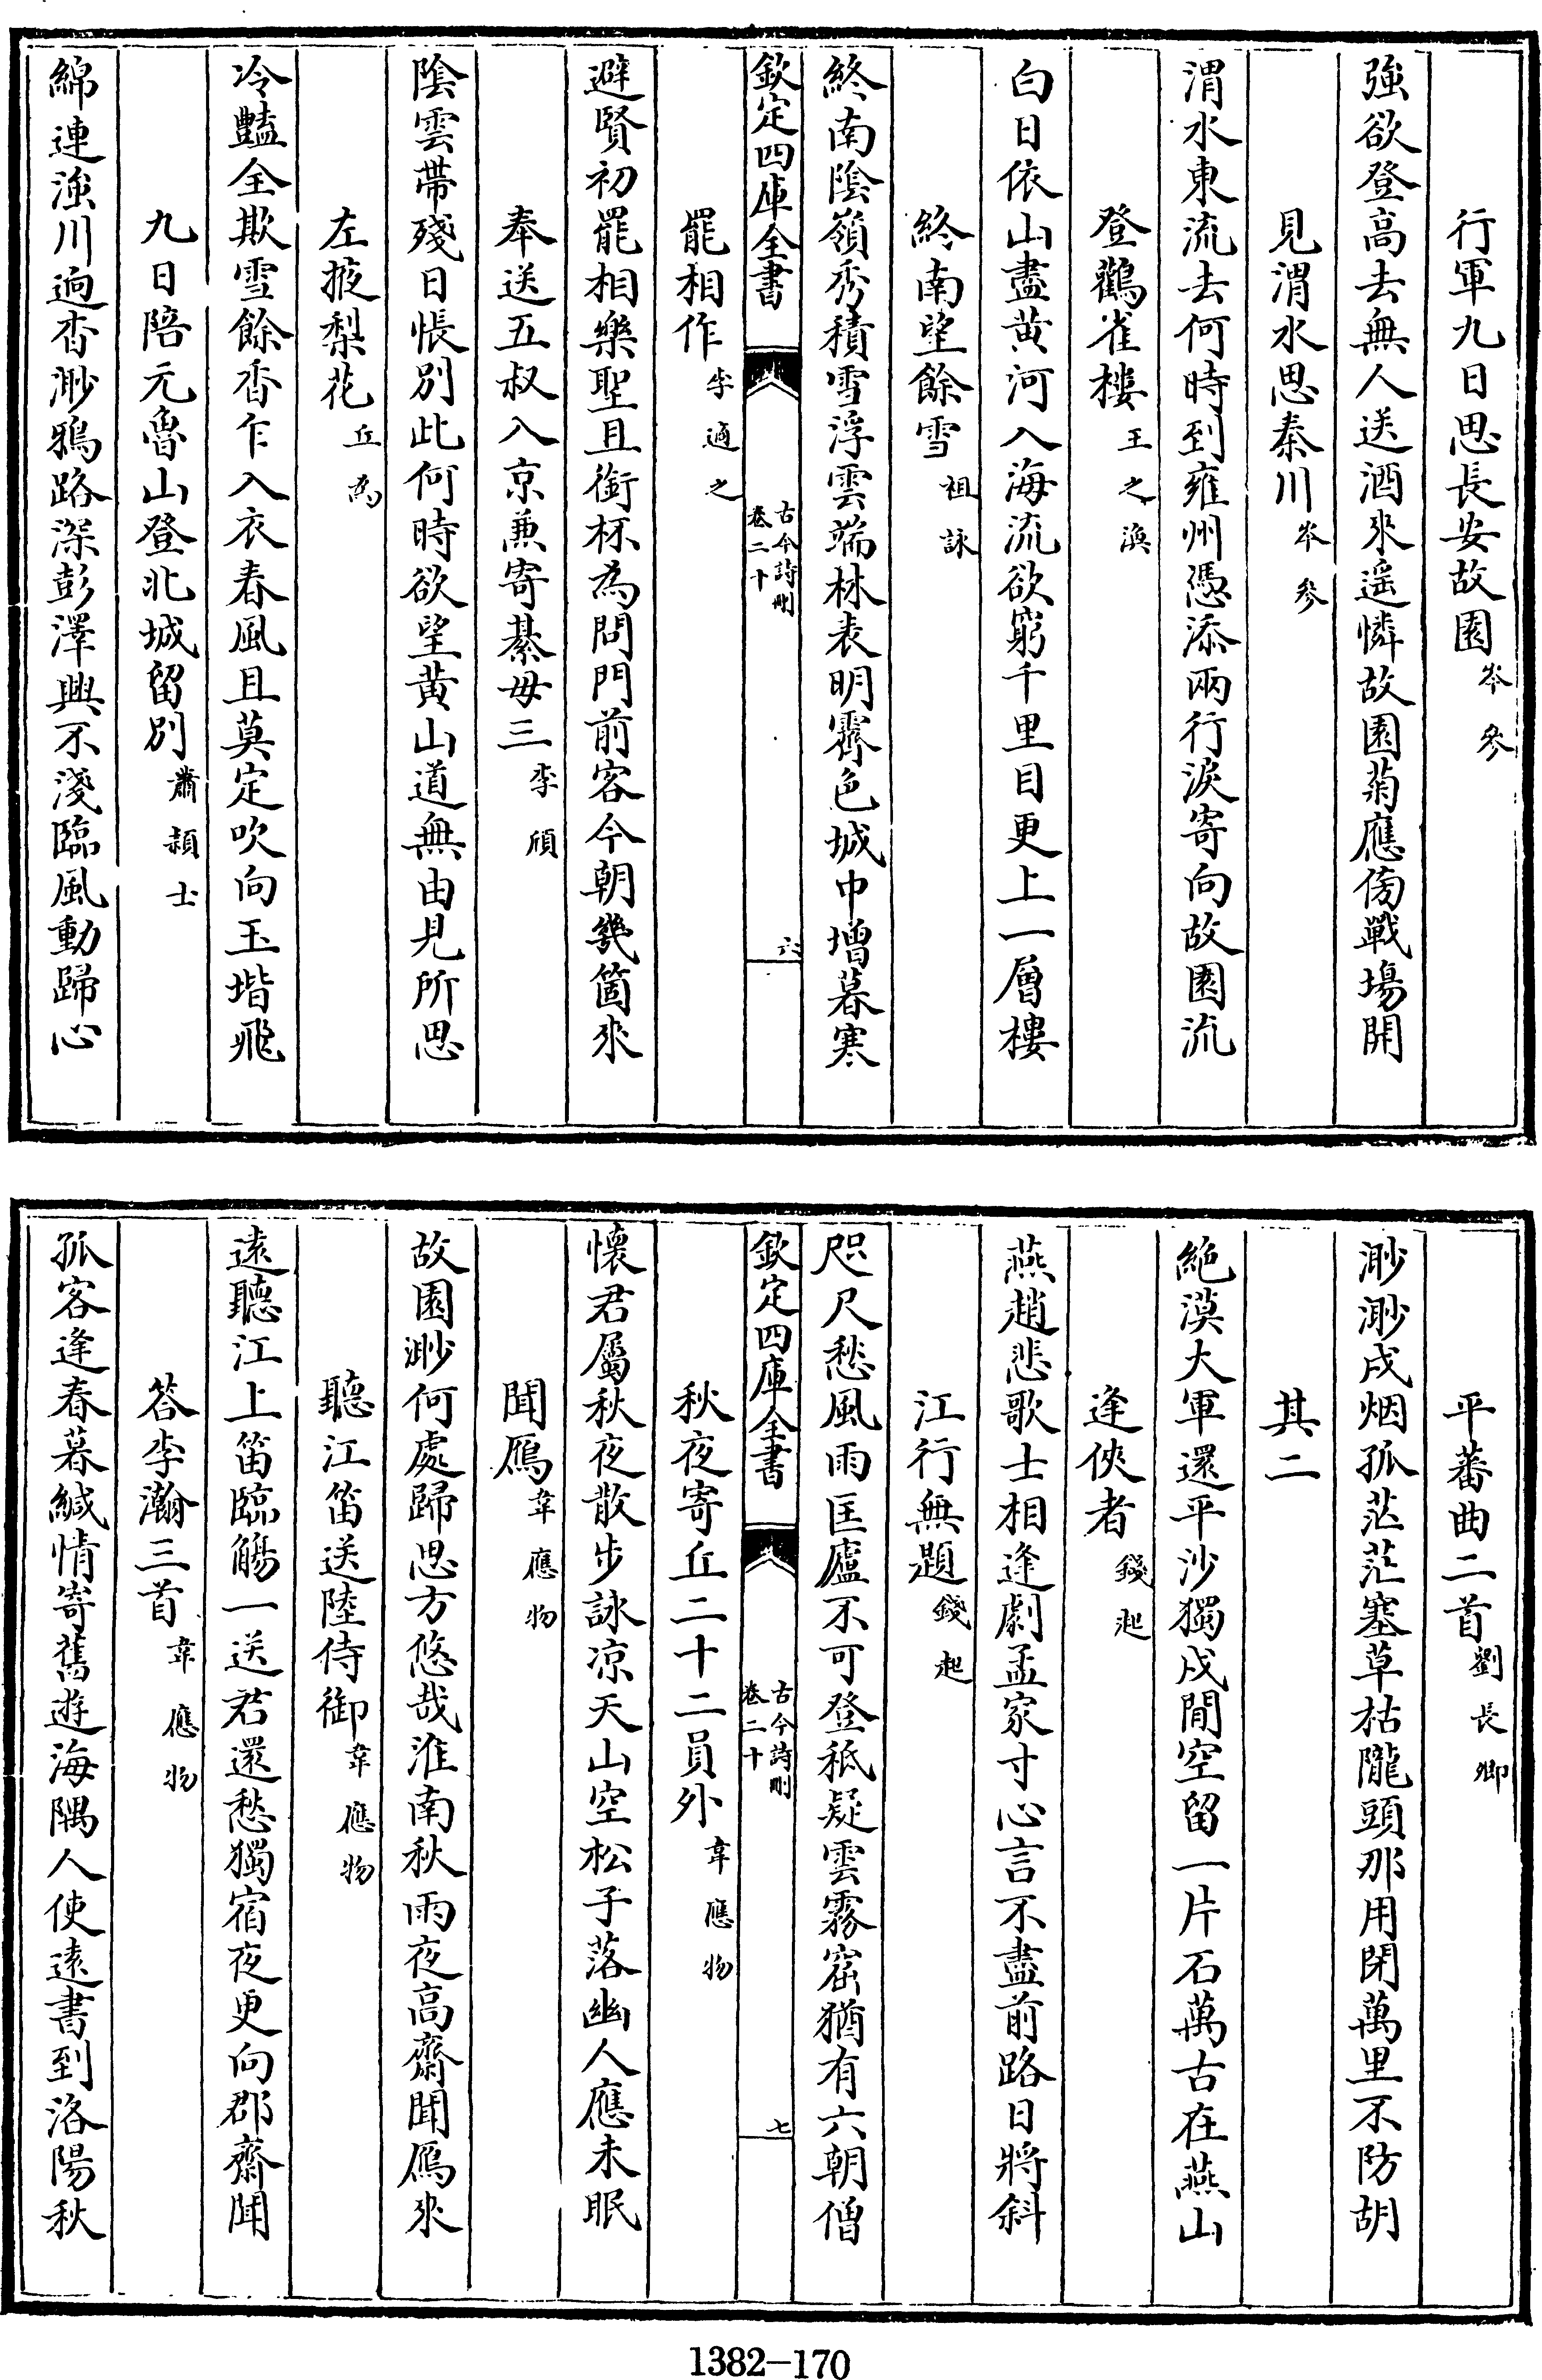 行軍九日思長安故園岑參
強欲登高去無人送酒來遥憐故園菊應傍戰場開
見渭水思秦川岑參
渭水東流去何時到雍州憑添兩行淚寄向故園流
登鸛雀樓王之渙
白日依山盡黄河入海流欲窮千里目更上一層樓
終南望餘雪祖詠
終南陰嶺秀積雪浮雲端林表明霽色城中增暮寒
欽定四庫全書
古今詩刪
卷二十
六
罷相作李適之
避賢初罷相樂聖且銜杯為問門前客今朝幾箇來
奉送五叔入京兼寄綦毋三李頎
陰雲帶殘日悵別此何時欲望黄山道無由見所思
左掖梨花丘為
冷豔全欺雪餘香乍入衣春風且莫定吹向玉堦飛
九日陪元魯山登北城留別蕭穎士
綿連滍川逈杳渺鴉路深彭澤興不淺臨風動歸心
平蕃曲二首劉長卿
渺渺戍烟孤茫茫塞草枯隴頭那用閉萬里不防胡
其二
絶漠大軍還平沙獨戍閒空留一片石萬古在燕山
逢俠者錢起
燕趙悲歌士相逢劇孟家寸心言不盡前路日將斜
江行無題錢起
咫尺愁風雨匡廬不可登秪疑雲霧窟猶有六朝僧
欽定四庫全書
古今詩刪
卷二十
七
秋夜寄丘二十二員外韋應物
懷君屬秋夜散步詠凉天山空松子落幽人應未眠
聞鴈韋應物
故園渺何處歸思方悠哉淮南秋雨夜高齋聞鴈來
聽江笛送陸侍御韋應物
遠聽江上笛臨觴一送君還愁獨宿夜更向郡齋聞
答李瀚三首韋應物
孤客逢春暮緘情寄舊遊海隅人使遠書到洛陽秋
1382-170